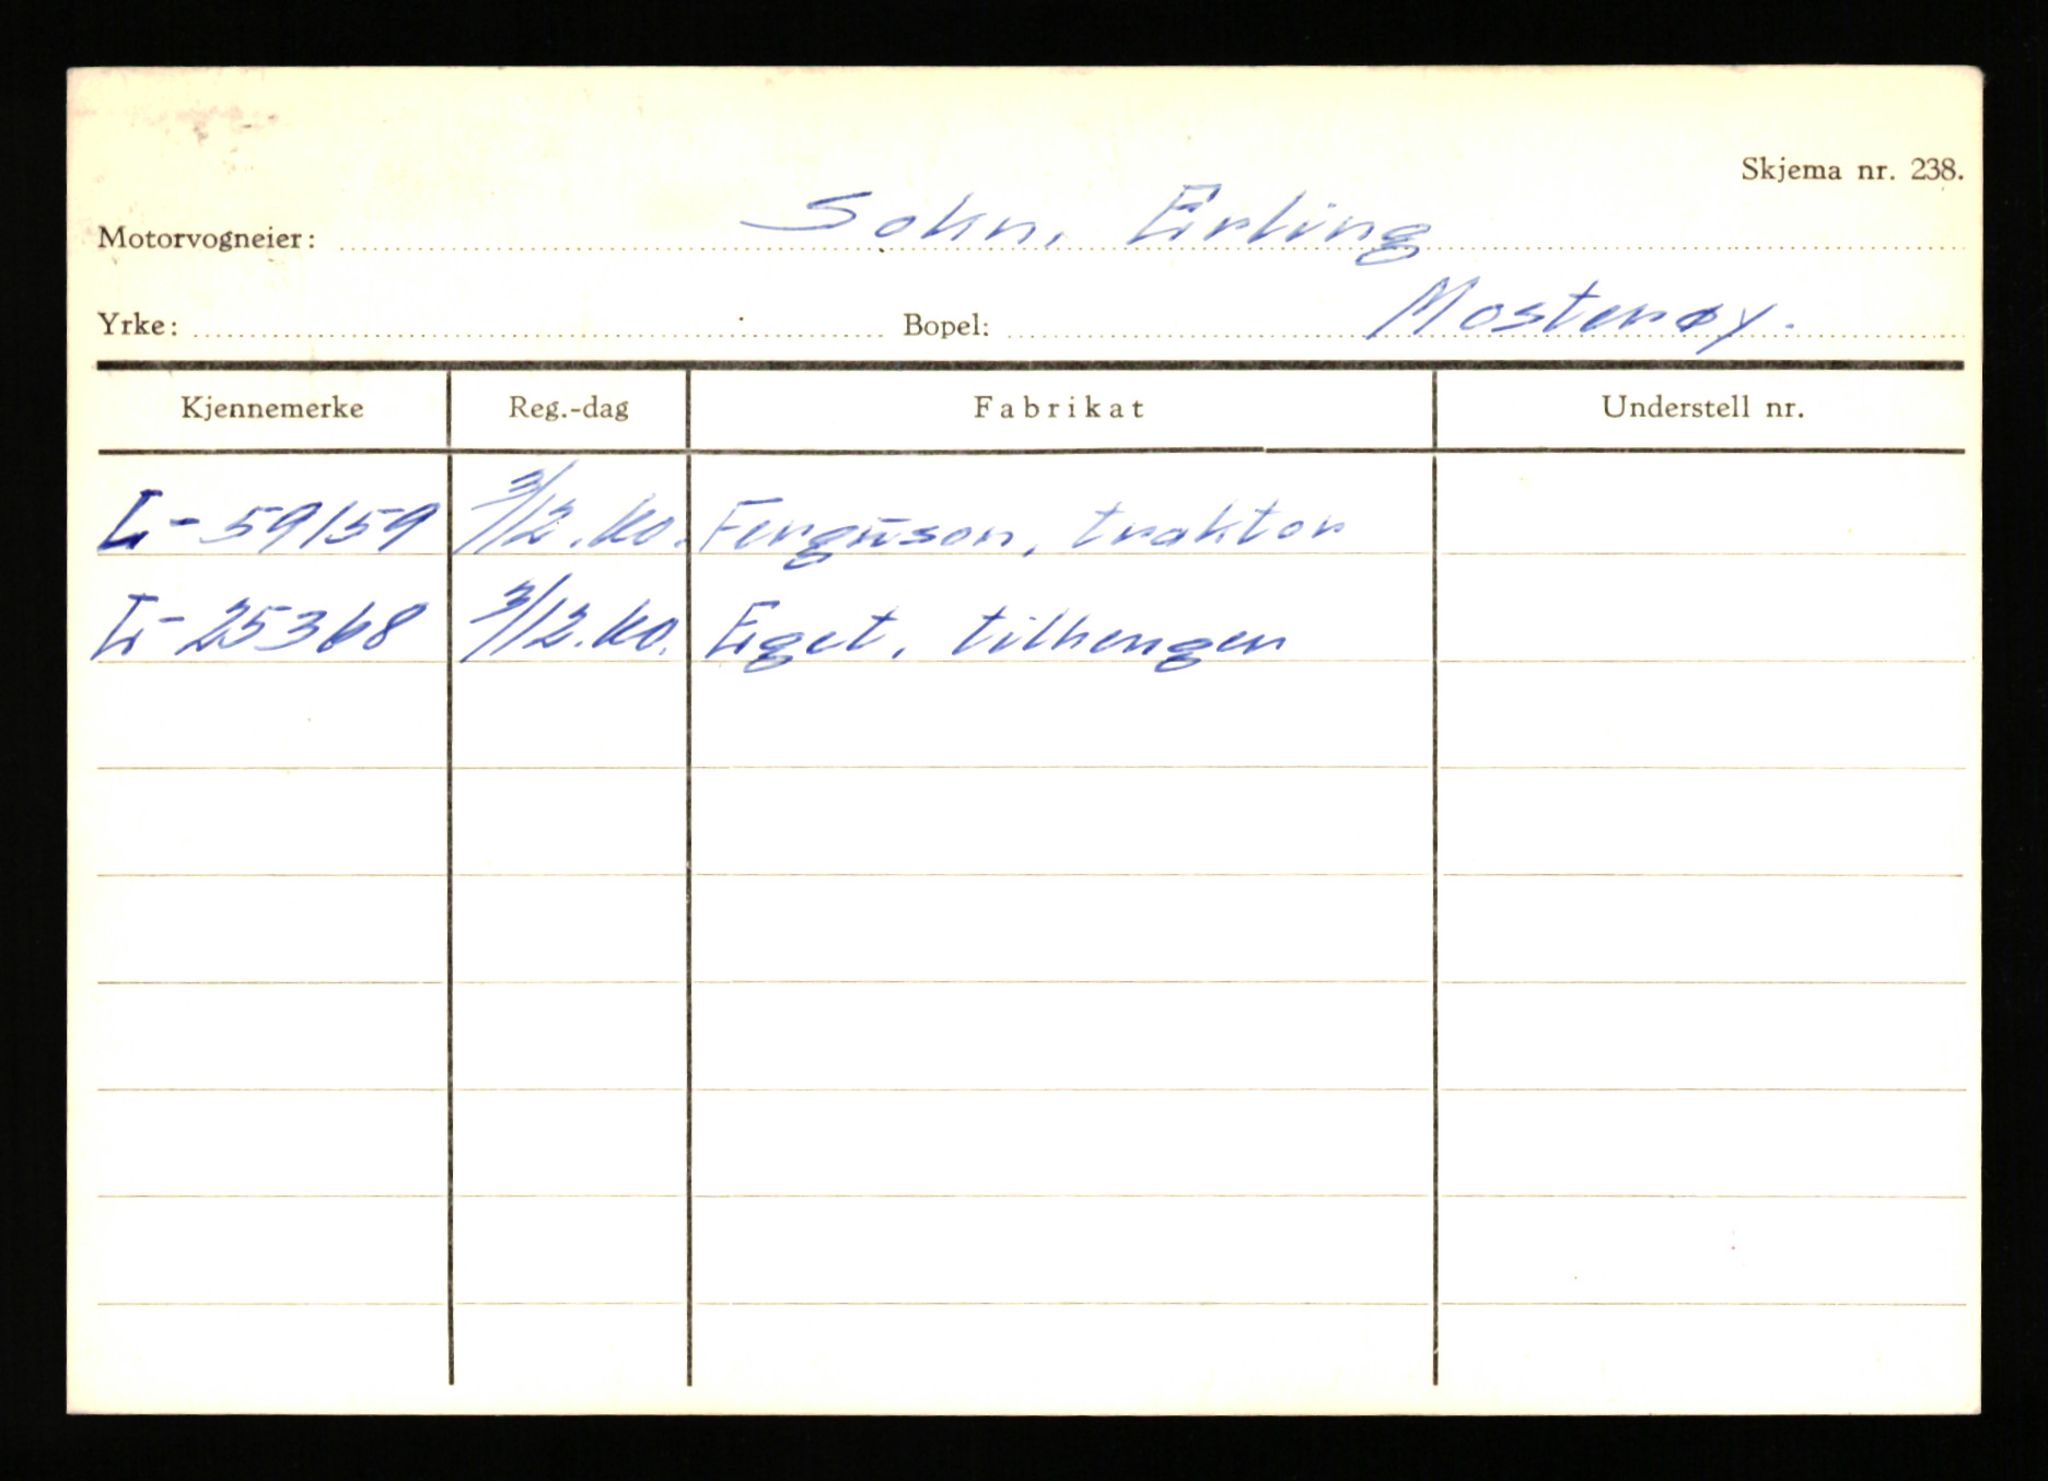 Skjema nr. 238.
Motorvogneier: Sokn, Erling
Yrke: Bopel: Mosterøy.
Kjennemerke Reg.-dag Fabrikat Understell nr.
L-59159 3/12.60. Ferguson, traktor
L-25368 3/12.60. Eget, tilhenger